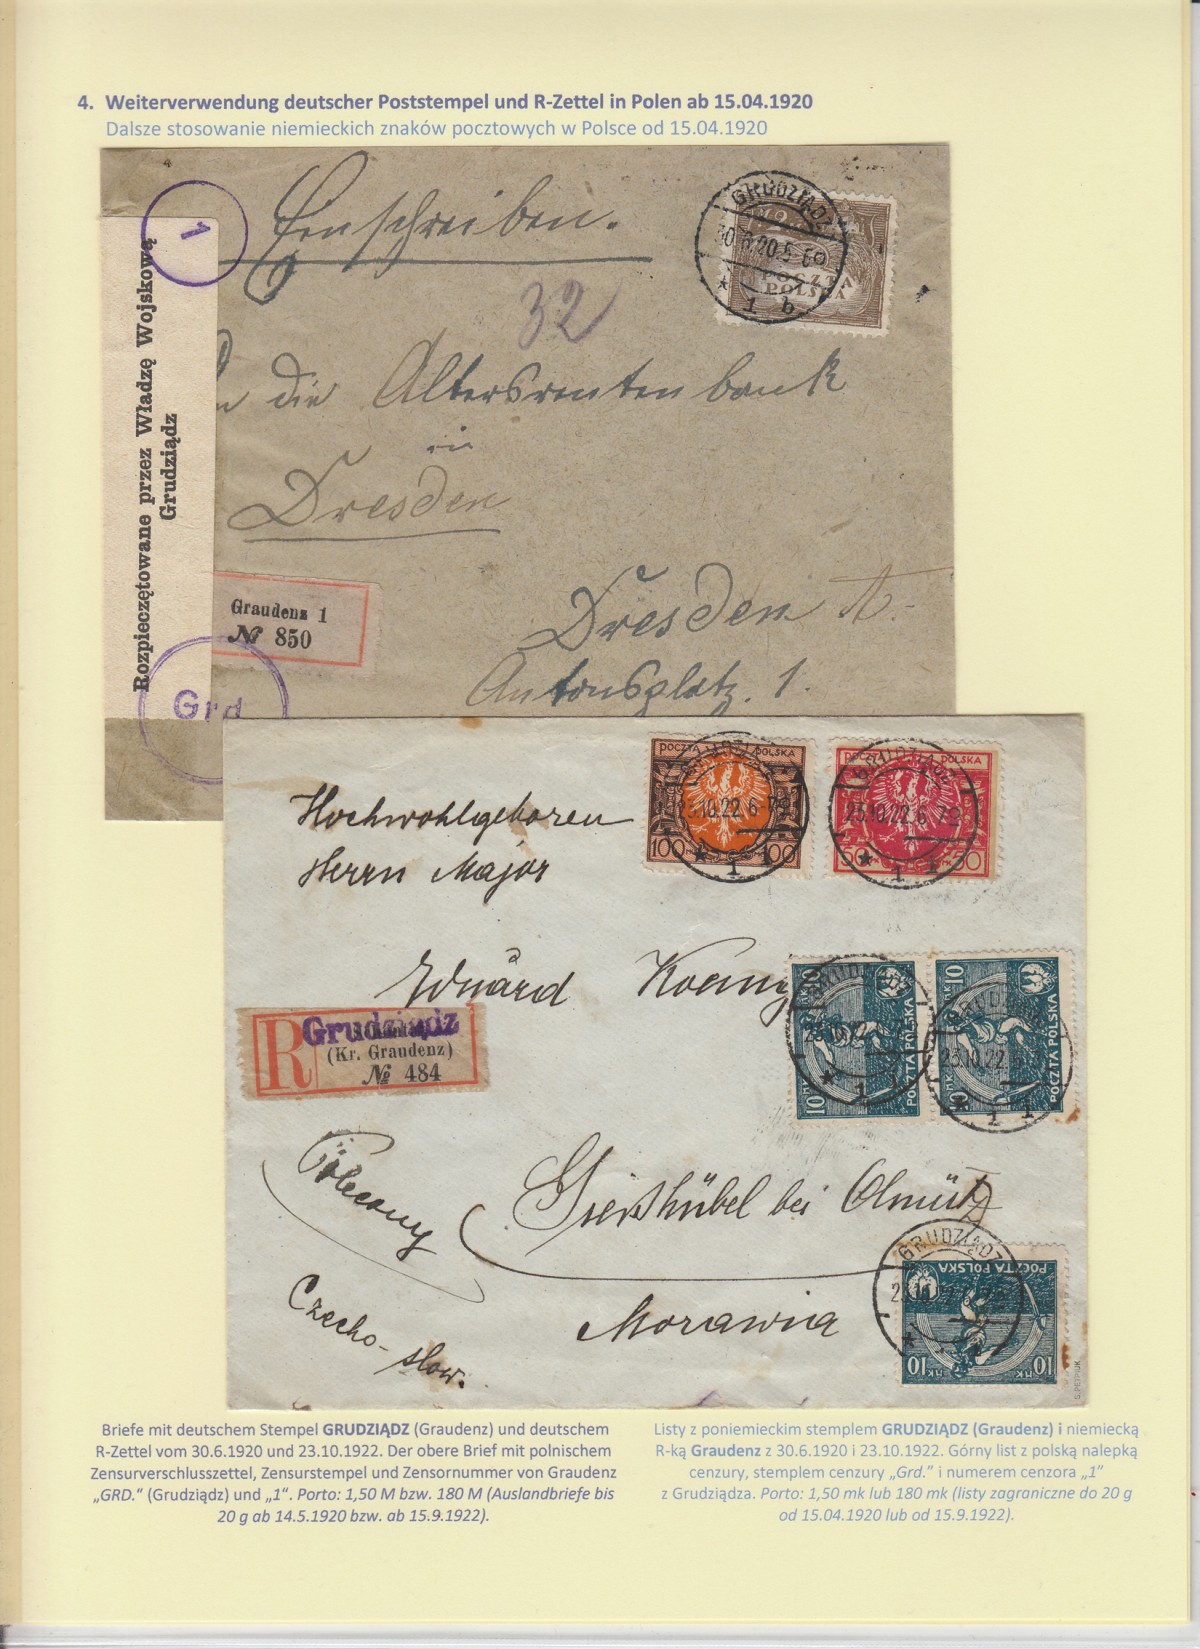 4. Weiterverwendung deutscher Poststempel und R-Zettel in Polen ab 15.04.1920
Dalsze stosowanie niemieckich znaków pocztowych w Polsce od 15.04.1920
1
Einschreiben.
GRUDZIĄDZ
30.6.20.5-6
* 1 b
POCZTA
POLSKA
32
Rozpieczętowane przez Władzę Wojskową
Grudziądz
An die Altersrentenbank
in
Dresden
Graudenz 1
№ 850
Dresden A.
Antonsplatz. 1.
Grd
POCZTA POLSKA
100 100
GRUDZIĄDZ
23.10.22.6-7
* 1 1
POCZTA POLSKA
50 50
GRUDZIĄDZ
23.10.22.6-7
* 1 1
Hochwohlgeboren
Herrn Major
Eduard
10 MK 10
POCZTA POLSKA
GRUDZIĄDZ
10 MK 10
POCZTA POLSKA
GRUDZIĄDZ
23.10.22
* 1 1
R
Grudziądz
(Kr. Graudenz)
№ 484
Giesshübel bei Olmütz
Czecho-slow.
Morawia
GRUDZIĄDZ
POCZTA POLSKA
10 MK 10
Briefe mit deutschem Stempel GRUDZIĄDZ (Graudenz) und deutschem
R-Zettel vom 30.6.1920 und 23.10.1922. Der obere Brief mit polnischem
Zensurverschlusszettel, Zensurstempel und Zensornummer von Graudenz
„GRD.“ (Grudziądz) und „1“. Porto: 1,50 M bzw. 180 M (Auslandbriefe bis
20 g ab 14.5.1920 bzw. ab 15.9.1922).
Listy z poniemieckim stemplem GRUDZIĄDZ (Graudenz) i niemiecką
R-ką Graudenz z 30.6.1920 i 23.10.1922. Górny list z polską nalepką
cenzury, stemplem cenzury „Grd.” i numerem cenzora „1”
z Grudziądza. Porto: 1,50 mk lub 180 mk (listy zagraniczne do 20 g
od 15.04.1920 lub od 15.9.1922).